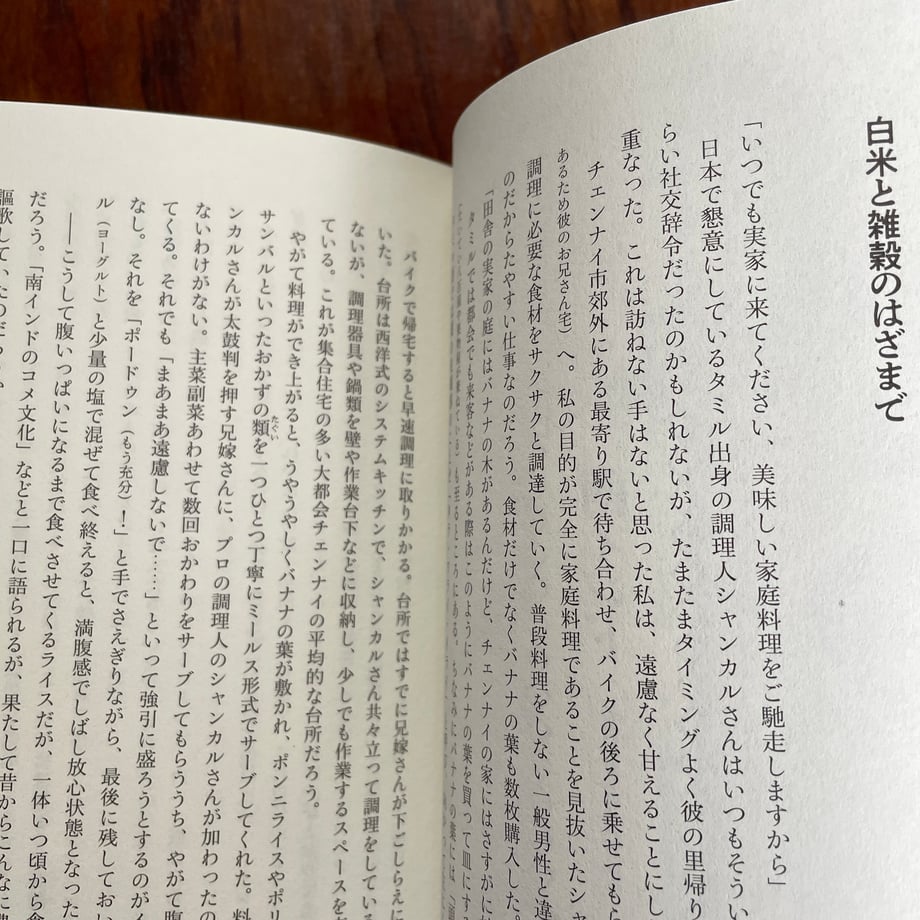 白米と雑穀のはざまで
「いつでも実家に来てください、美味しい家庭料理をご馳走しますから」
日本で懇意にしているタミル出身の調理人シャンカルさんはいつもそうい
らい社交辞令だったのかもしれないが、たまたまタイミングよく彼の里帰り
重なった。これは訪ねない手はないと思った私は、遠慮なく甘えることにし
チェンナイ市郊外にある最寄り駅で待ち合わせ、バイクの後ろに乗せてもら
あるため彼のお兄さん宅）へ。私の目的が完全に家庭料理であることを見抜いたシャ
調理に必要な食材をサクサクと調達していく。普段料理をしない一般男性と違
のだからたやすい仕事なのだろう。食材だけでなくバナナの葉も数枚購入した。
「田舎の実家の庭にはバナナの木があるんだけど、チェンナイの家にはさすがに
タミルでは都会でも来客などがある際はこのようにバナナの葉を買って皿にする
も至るところにある。ちなみにバナナの葉には
バイクで帰宅すると早速調理に取りかかる。台所ではすでに兄嫁さんが下ごしらえに
いた。台所は西洋式のシステムキッチンで、シャンカルさん共々立って調理をしている
ないが、調理器具や鍋類を壁や作業台下などに収納し、少しでも作業するスペースを
ている。これが集合住宅の多い大都会チェンナイの平均的な台所だろう。
やがて料理ができ上がると、うやうやしくバナナの葉が敷かれ、ポンニライスやポリ
サンバルといったおかずの類を一つひとつ丁寧にミールス形式でサーブしてくれた。料
ンカルさんが太鼓判を押す兄嫁さんに、プロの調理人のシャンカルさんが加わったの
ないわけがない。主菜副菜あわせて数回おかわりをサーブしてもらううち、やがて腹
てくる。それでも「まあまあ遠慮しないで……」といって強引に盛ろうとするのがイ
なし。それを「ポードゥン（もう充分）！」と手でさえぎりながら、最後に残しておい
ル（ヨーグルト）と少量の塩で混ぜて食べ終えると、満腹感でしばし放心状態となった
――こうして腹いっぱいになるまで食べさせてくるライスだが、一体いつ頃から食
だろう。「南インドのコメ文化」などと一口に語られるが、果たして昔からこんなに
謳歌していたのだろうか